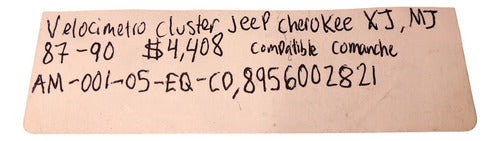 Velocimetro cluster Jeep cherokee XJ, MJ
87-90 $4,408 compatible comanche
AM-001-05-EQ-CO,8956002821